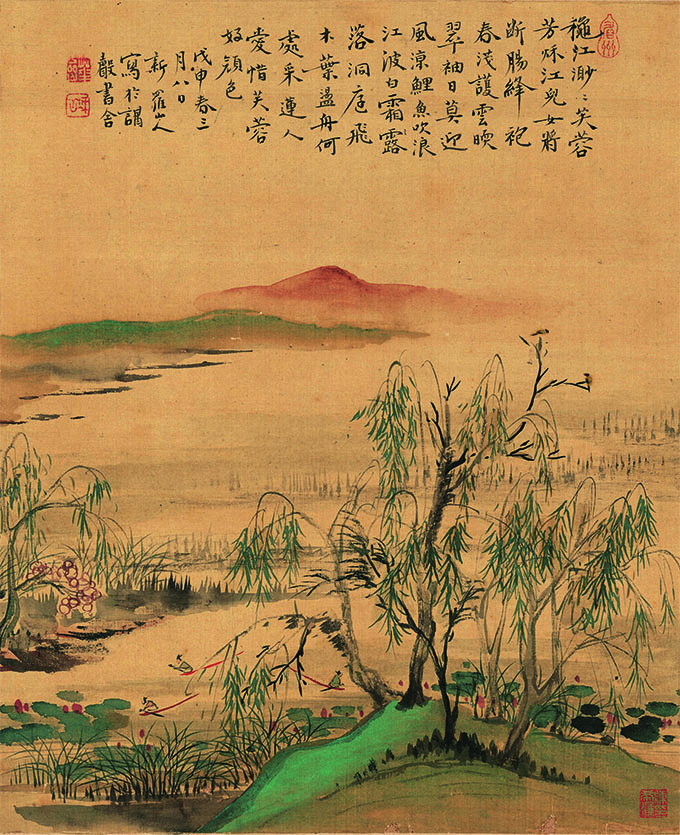 穐江渺〻芙蓉
芳秌江兒女將
断腸絳袍
春浅護雲暎
翠袖日莫迎
風涼鯉魚吹浪
江波白霜露
落洞庭飛
木葉盪舟何
處采蓮人
愛惜芙蓉
好顔色
戊申春三
月八日
新羅山人
寫於講
聲書舍